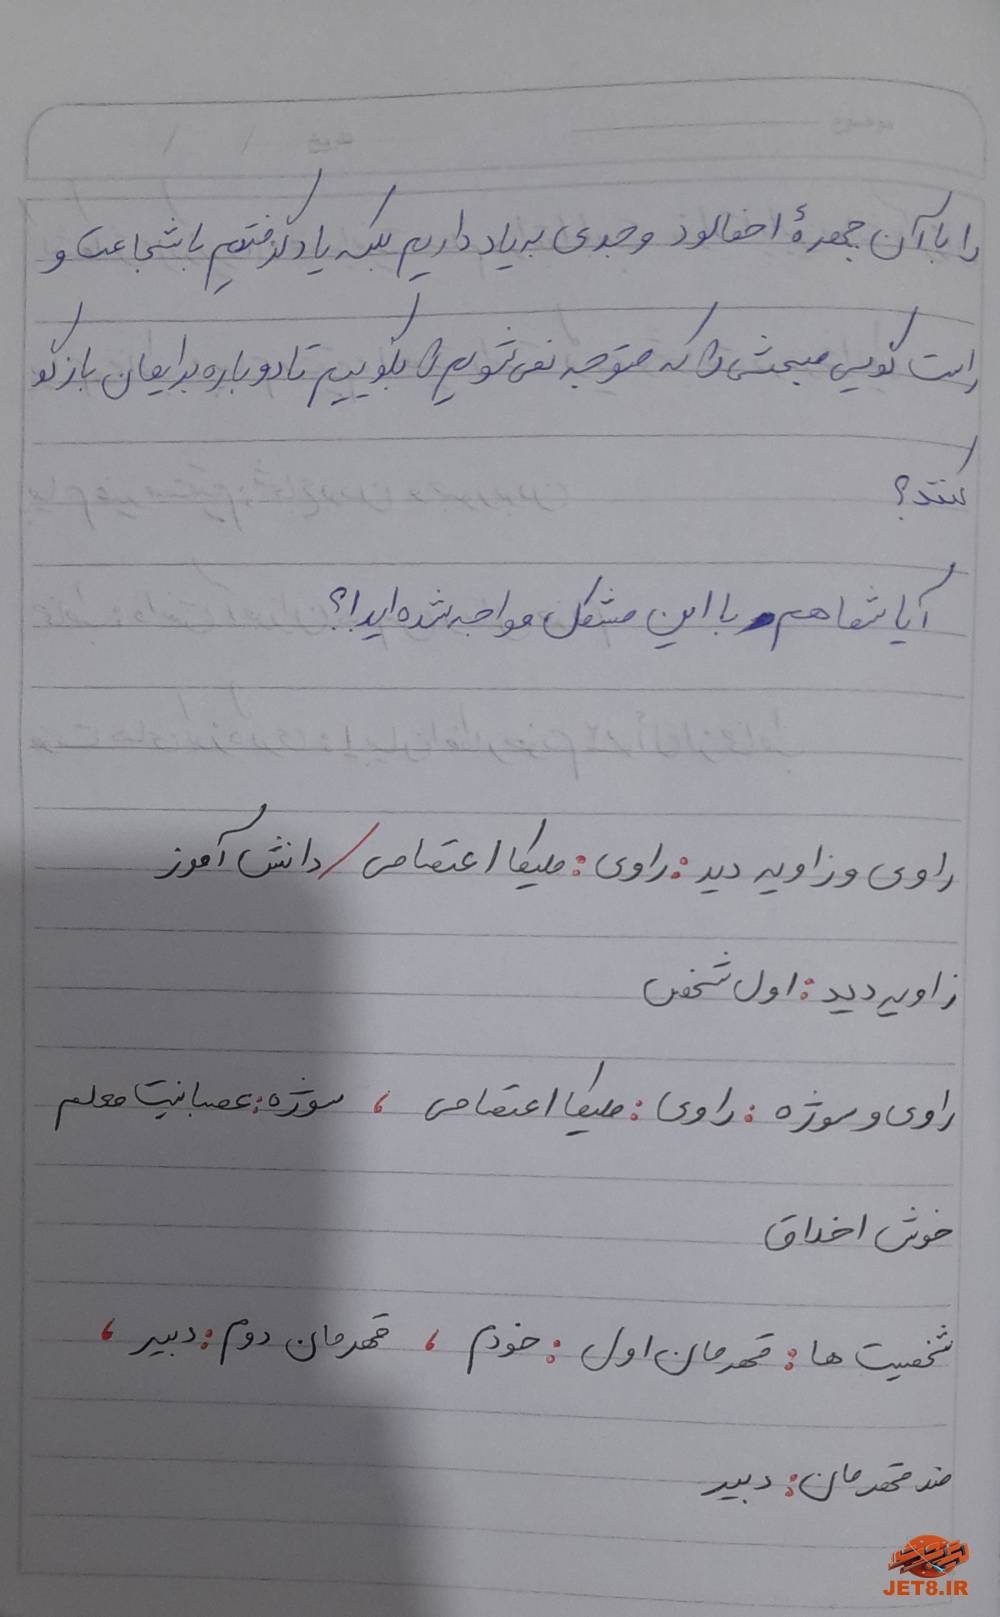 را با آن چهرهٔ اخمالود و جدی به یاد داریم بلکه یاد گرفتیم با شجاعت و
راست گویی مبحثی را که متوجه نمی شویم را بگوییم تا دوباره برایمان بازگو
کنند؟
آیا شما هم با این مشکل مواجه شده اید!؟
راوی و زاویه دید: راوی: ملیکا اعتصامی / دانش آموز
زاویه دید: اول شخص
راوی و سوژه: راوی: ملیکا اعتصامی ، سوژه: عصبانیت معلم
خوش اخلاق
شخصیت ها: قهرمان اول: خودم ، قهرمان دوم: دبیر ،
ضد قهرمان: دبیر
JET8.IR